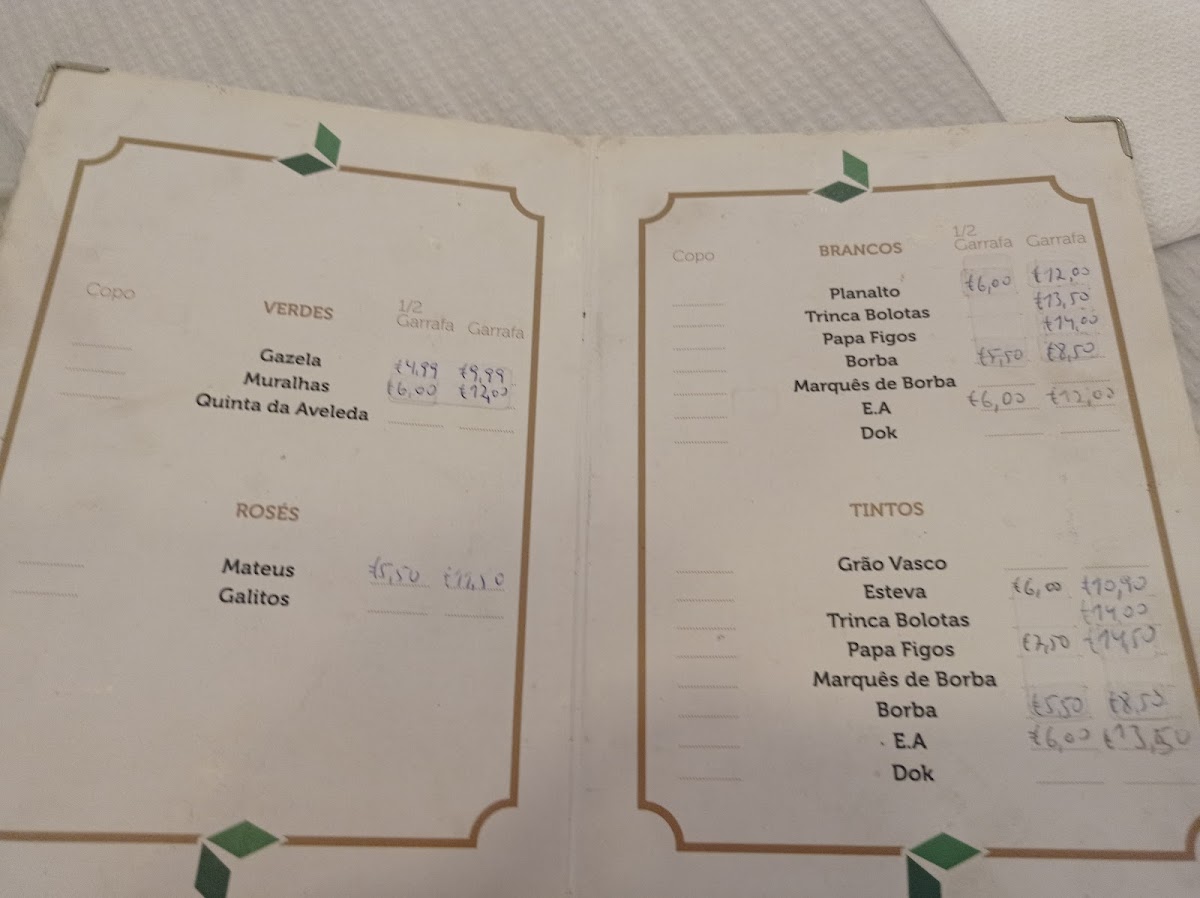 Copo VERDES 1/2 Garrafa Garrafa
Gazela €4,99 €9,99
Muralhas €6,00 €12,00
Quinta da Aveleda
ROSÉS
Mateus €5,50 €11,50
Galitos
Copo BRANCOS 1/2 Garrafa Garrafa
Planalto €6,00 €12,00
Trinca Bolotas €13,50
Papa Figos €14,00
Borba €5,50 €8,50
Marquês de Borba
E.A €6,00 €12,00
Dok
TINTOS
Grão Vasco
Esteva €6,00 €10,90
Trinca Bolotas €14,00
Papa Figos €7,50 €14,50
Marquês de Borba
Borba €5,50 €8,50
E.A €6,00 €13,50
Dok